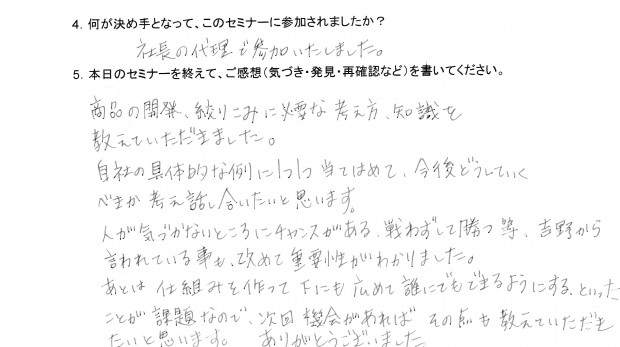 4. 何が決め手となって、このセミナーに参加されましたか？
社長の代理で参加いたしました。
5. 本日のセミナーを終えて、ご感想（気づき・発見・再確認など）を書いてください。
商品の開発、絞りこみに必要な考え方、知識を
教えていただきました。
自社の具体的な例に1つ1つ当てはめて、今後どうしていく
べきか考え話し合いたいと思います。
人が気づかないところにチャンスがある、戦わずして勝つ等、吉野から
言われている事も、改めて重要性がわかりました。
あとは仕組みを作って下にも広めて誰にでもできるようにする、といった
ことが課題なので、次回機会があればその点も教えていただき
たいと思います。ありがとうございました